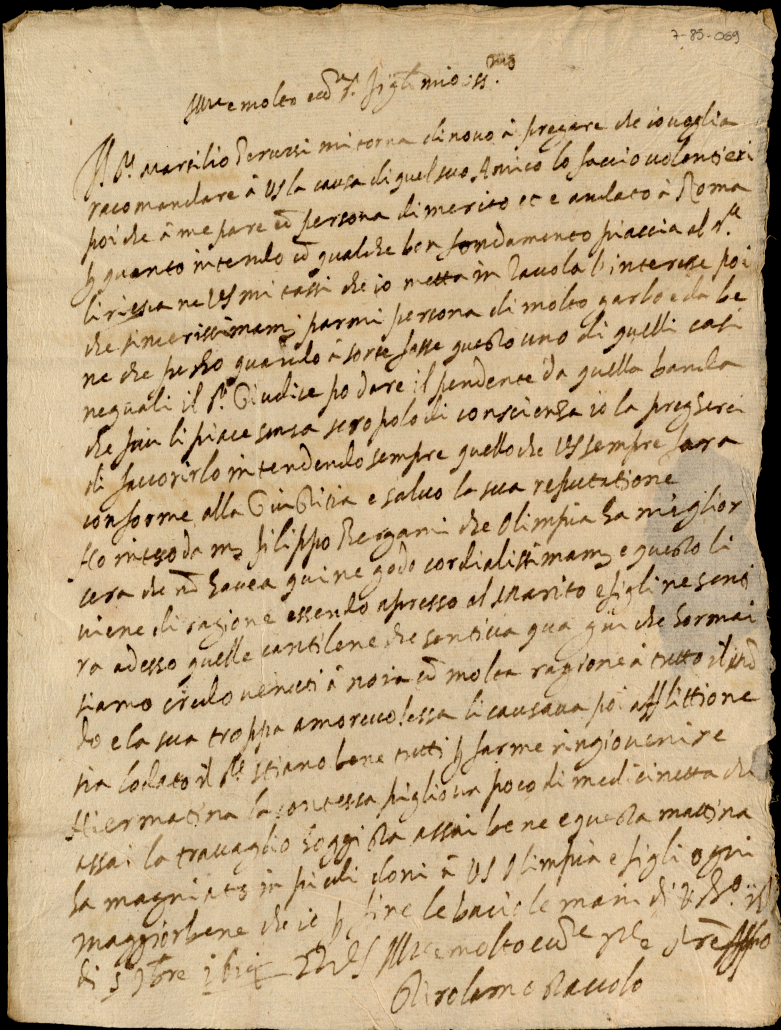 7-85-069
Ill.re e molto ecc.te S.r figl mio oss.mo
Il S.r Marsilio Peruzzi mi torna di novo à pregare che io voglia
racomandare à VS la causa di quel suo Amico lo faccio volentieri
poi che à me pare cõ persona di merito et e andato à Roma
p quanto intendo cõ qualche bon fondamento piaccia al S.re
li riesca ne VS mi tassi che io metta in tavola l'interesse poi
che sincerissimam. parmi persona di molto garbo e da be
ne che perho quando à sorte fosse questo uno di quelli casi
nequali il S.r Giudice po dare il pendente da quella banda
che piu li piace senza scropolo di conscienza io la pregherei
di favorirlo intendendo sempre quello che VS sempre fara
conforme alla Giustitia e salvo la sua reputatione
Ho inteso da m. Filippo Bergami che Olimpia ha miglior
cera che nõ havea qui ne godo cordialissimam. e questo li
viene di ragione essendo apresso al Marito e figli ne senti
ra adesso quelle cantilene che sentiva qua giu che hormai
siamo venuti à noia cõ molta ragione à tutto il mõ
do e la sua troppa amorevolessa li causava poi afflittione
sia lodato il S.re stiano bene tutti p farme ringiovenire
Hiermatina la contessa piglio un poco di medicinetta che
assai la travaglio hoggi sta assai bene e questa mattina
ha magniato in piedi doni à VS Olimpia e figli ogni
maggior bene che io p fine le bacio le mani di
di 5 9bre Di VS Ill.re e molto ecc.te
Girolamo